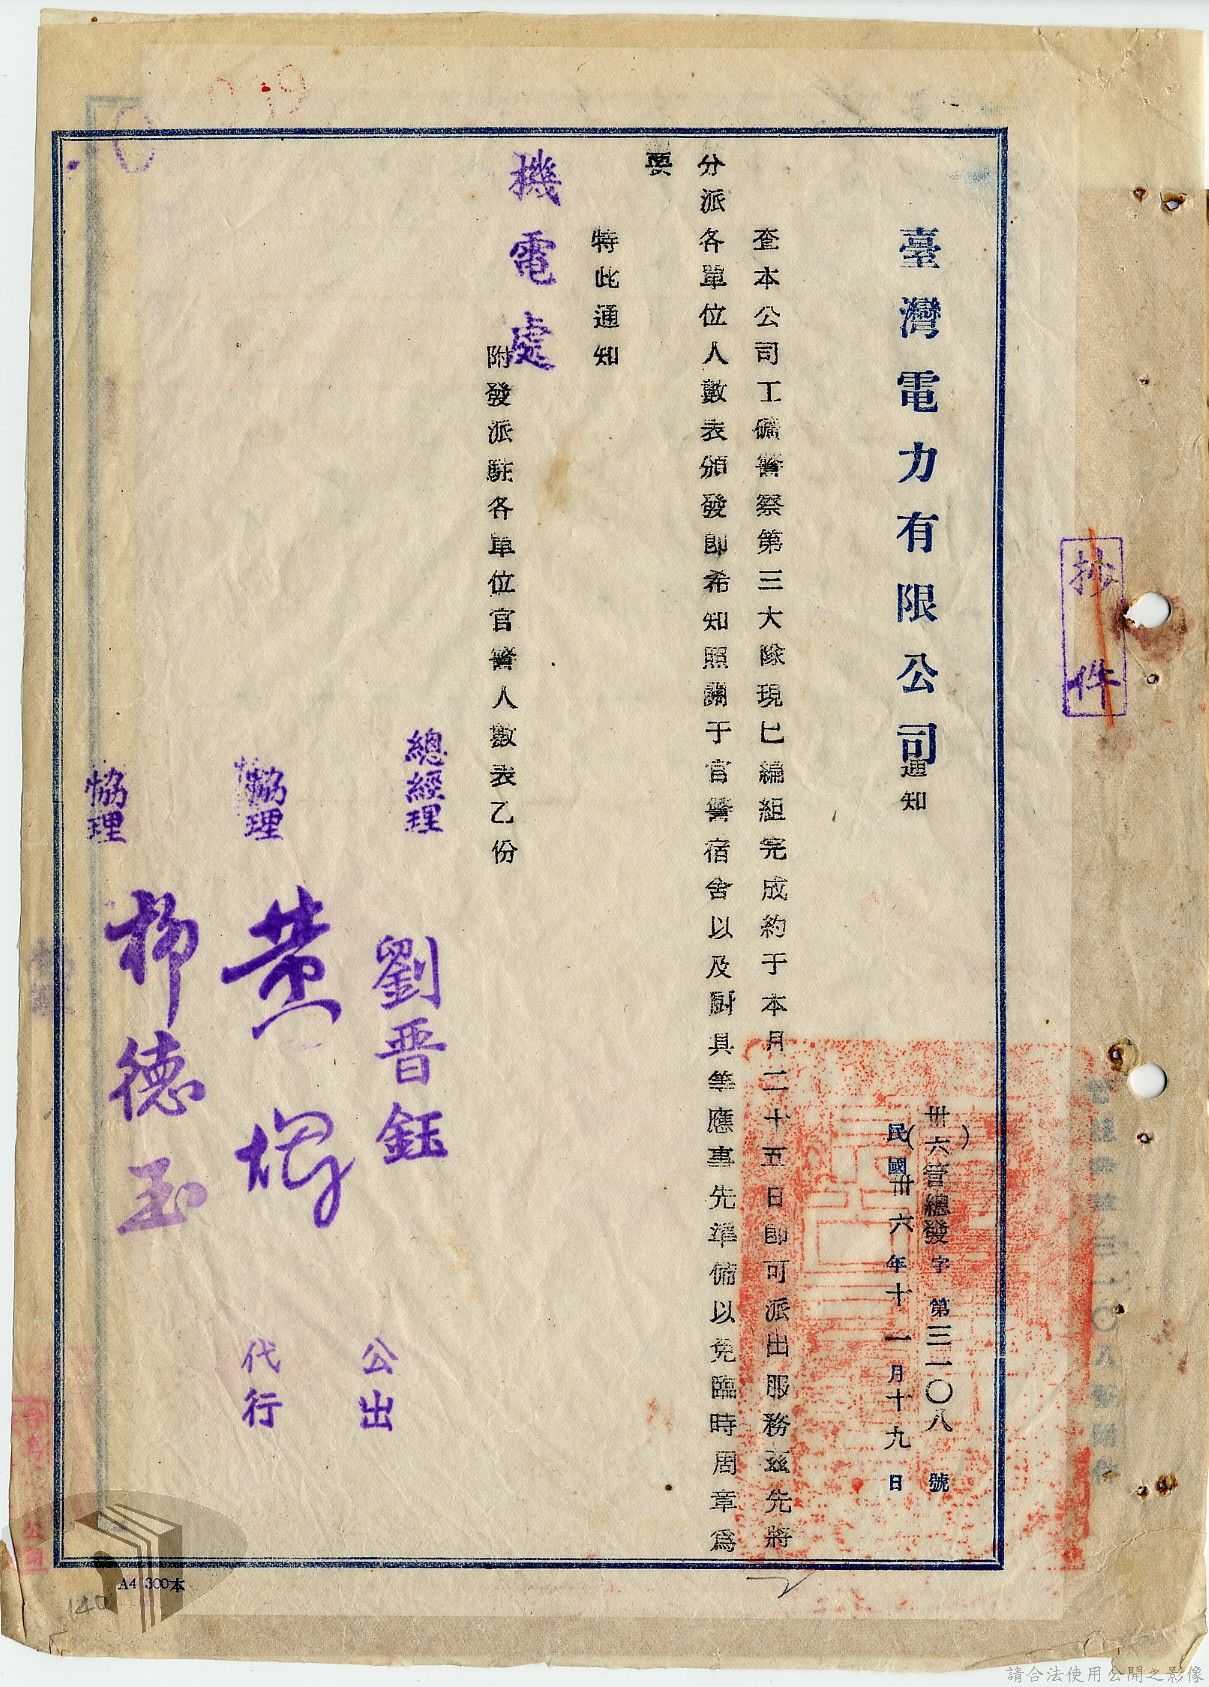 抄件
臺灣電力有限公司通知
卅六管總發字第三一〇八號
民國卅六年十一月十九日
查本公司工礦警察第三大隊現已編組完成約于本月二十五日卽可派出服務茲先將
分派各單位人數表頒發卽希知照關于官警宿舍以及厨具等應事先準備以免臨時周章爲
要
特此通知
機電處
附發派駐各單位官警人數表乙份
總經理 劉晋鈺 公出
協理 黃煇 代行
協理 柳德玉
A4 300本
140
請合法使用公開之影像